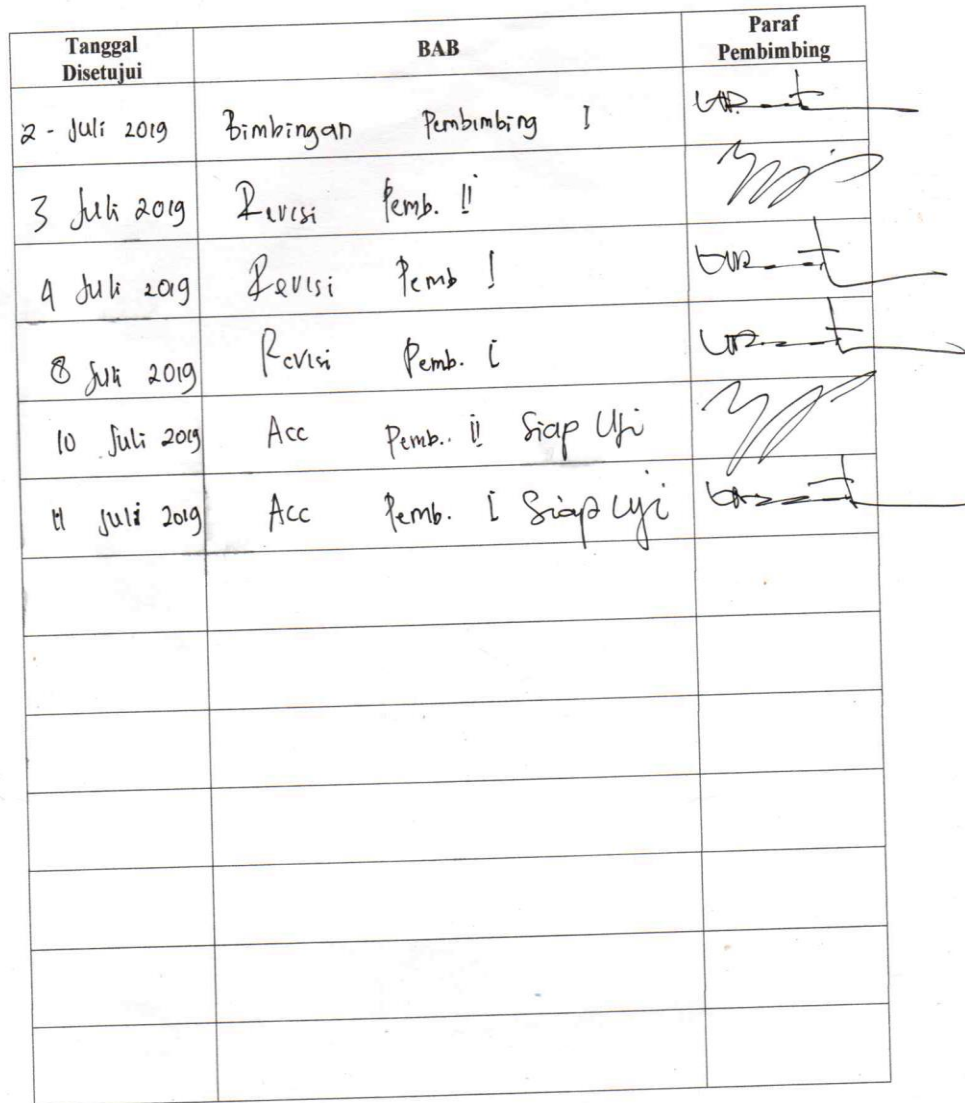 Tanggal Disetujui BAB Paraf Pembimbing
2 - Juli 2019 Bimbingan Pembimbing I
3 Juli 2019 Revisi Pemb. II
4 Juli 2019 Revisi Pemb I
8 Juli 2019 Revisi Pemb. I
10 Juli 2019 Acc Pemb.. II Siap Uji
11 Juli 2019 Acc Pemb. I Siap Uji